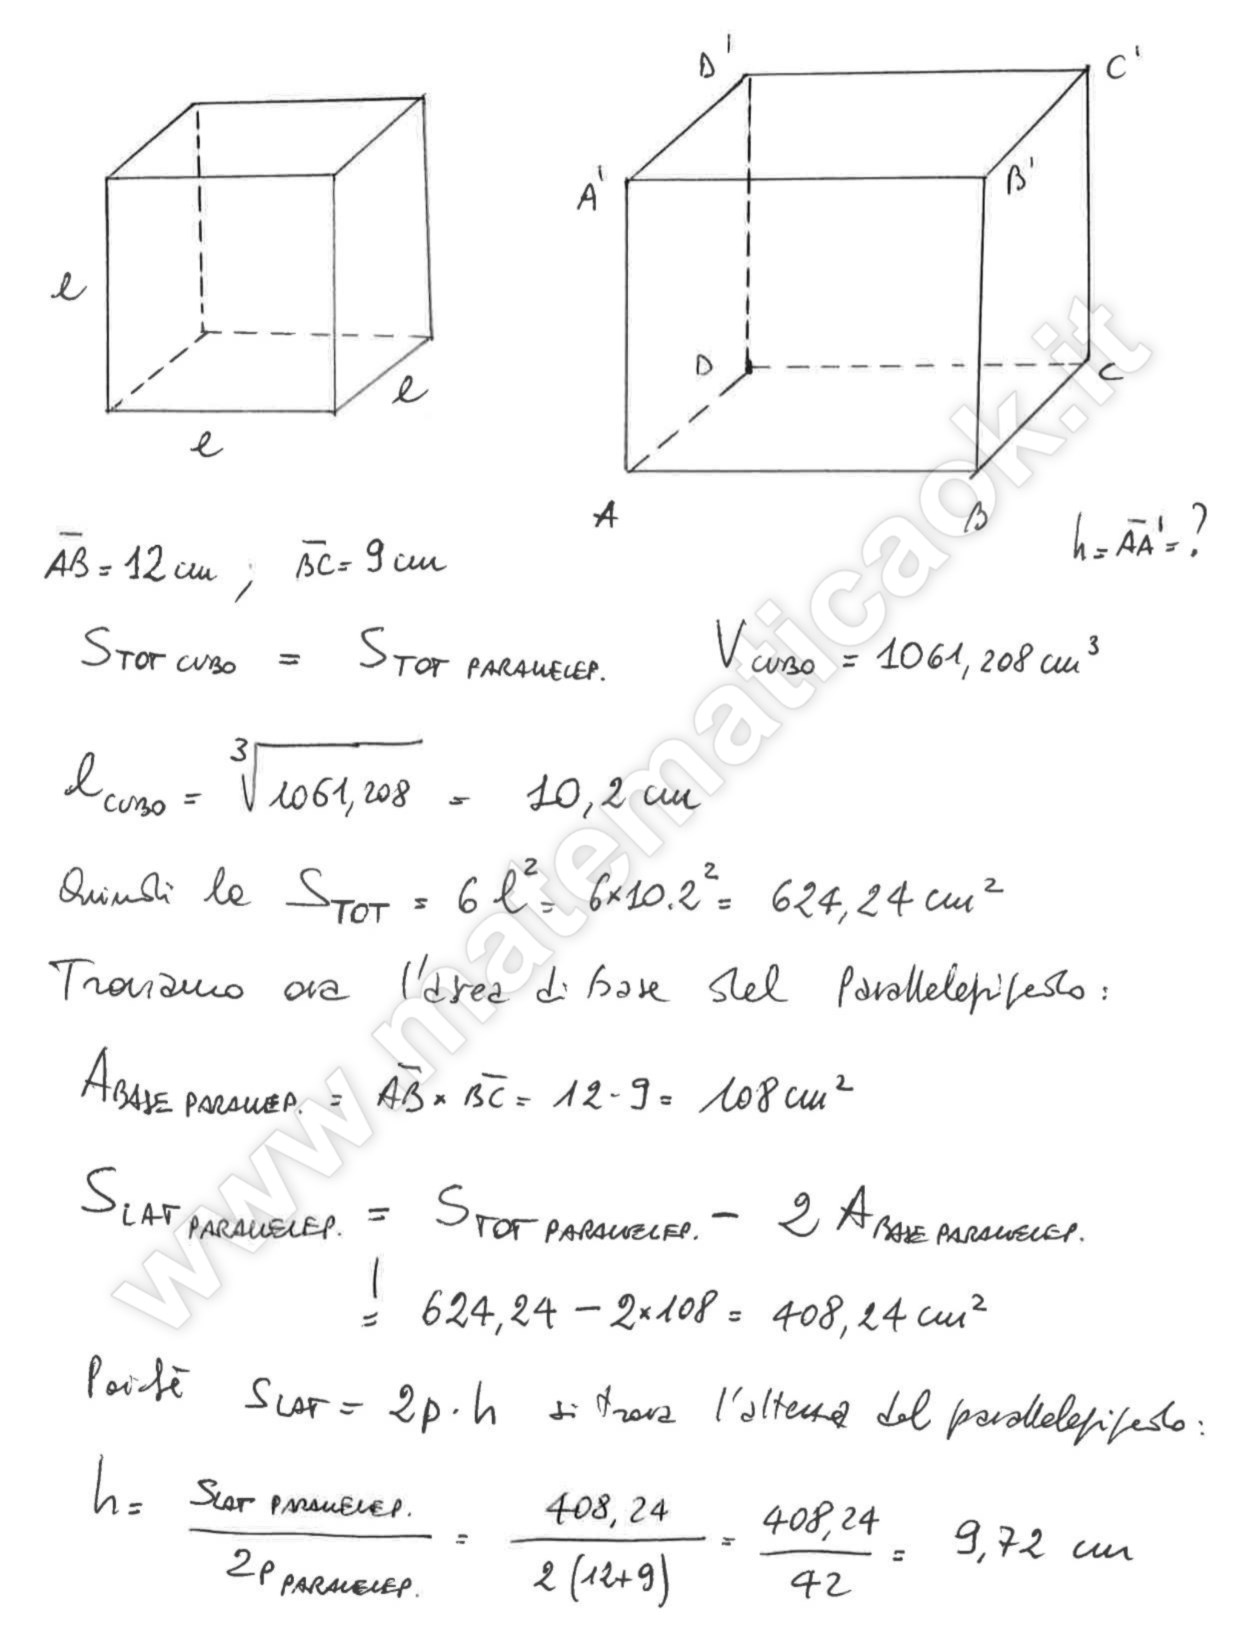 D' C'
A' B'
l
D C
l
l
A B
h = AA' = ?
AB = 12 cm ; BC = 9 cm
STOT CUBO = STOT PARALLELEP. VCUBO = 1061,208 cm³
lCUBO = ³√1061,208 = 10,2 cm
Quindi la STOT = 6 l² = 6×10.2² = 624,24 cm²
Troviamo ora l'area di base del Parallelepipedo:
ABASE PARALLEP. = AB × BC = 12 · 9 = 108 cm²
SLAT PARALLELEP. = STOT PARALLELEP. – 2 ABASE PARALLELEP.
= 624,24 – 2×108 = 408,24 cm²
Poiché SLAT = 2p · h si trova l'altezza del parallelepipedo:
h = SLAT PARALLELEP. / 2P PARALELEP. = 408,24 / 2(12+9) = 408,24 / 42 = 9,72 cm
www.matematicaok.it